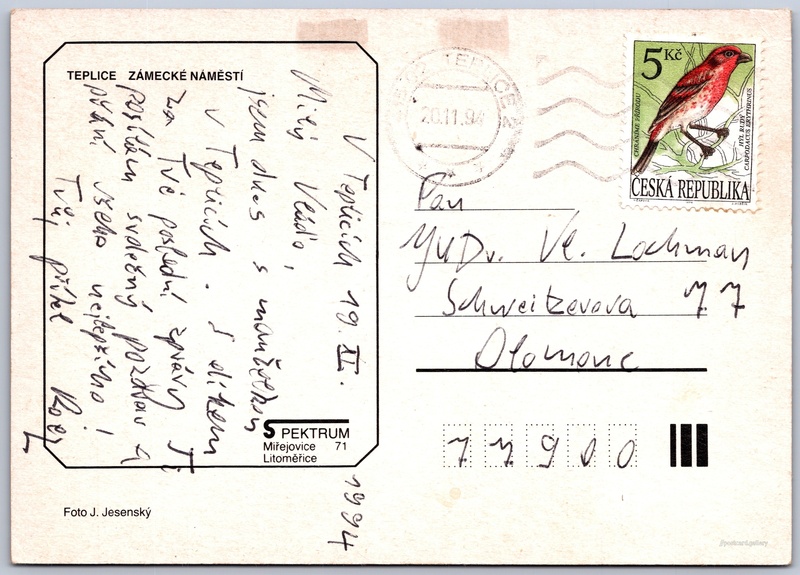 TEPLICE ZÁMECKÉ NÁMĚSTÍ
V Teplicích 19. II. 1994
Milý Vláďo,
jsem dnes s manželkou
v Teplicích. S díkem
za Tvé poslední zprávy Ti
posílám srdečný pozdrav a
přání všeho nejlepšího!
Tvůj přítel
SPEKTRUM
Miřejovice 71
Litoměřice
Foto J. Jesenský
TEPLICE 2
20.11.94
5 Kč
CHRAŇME PŘÍRODU
HÝL RUDÝ
CARPODACUS ERYTHRINUS
ČESKÁ REPUBLIKA
Pan
JUDr. Vl. Lochman
Schweitzerova 77
Olomouc
77900